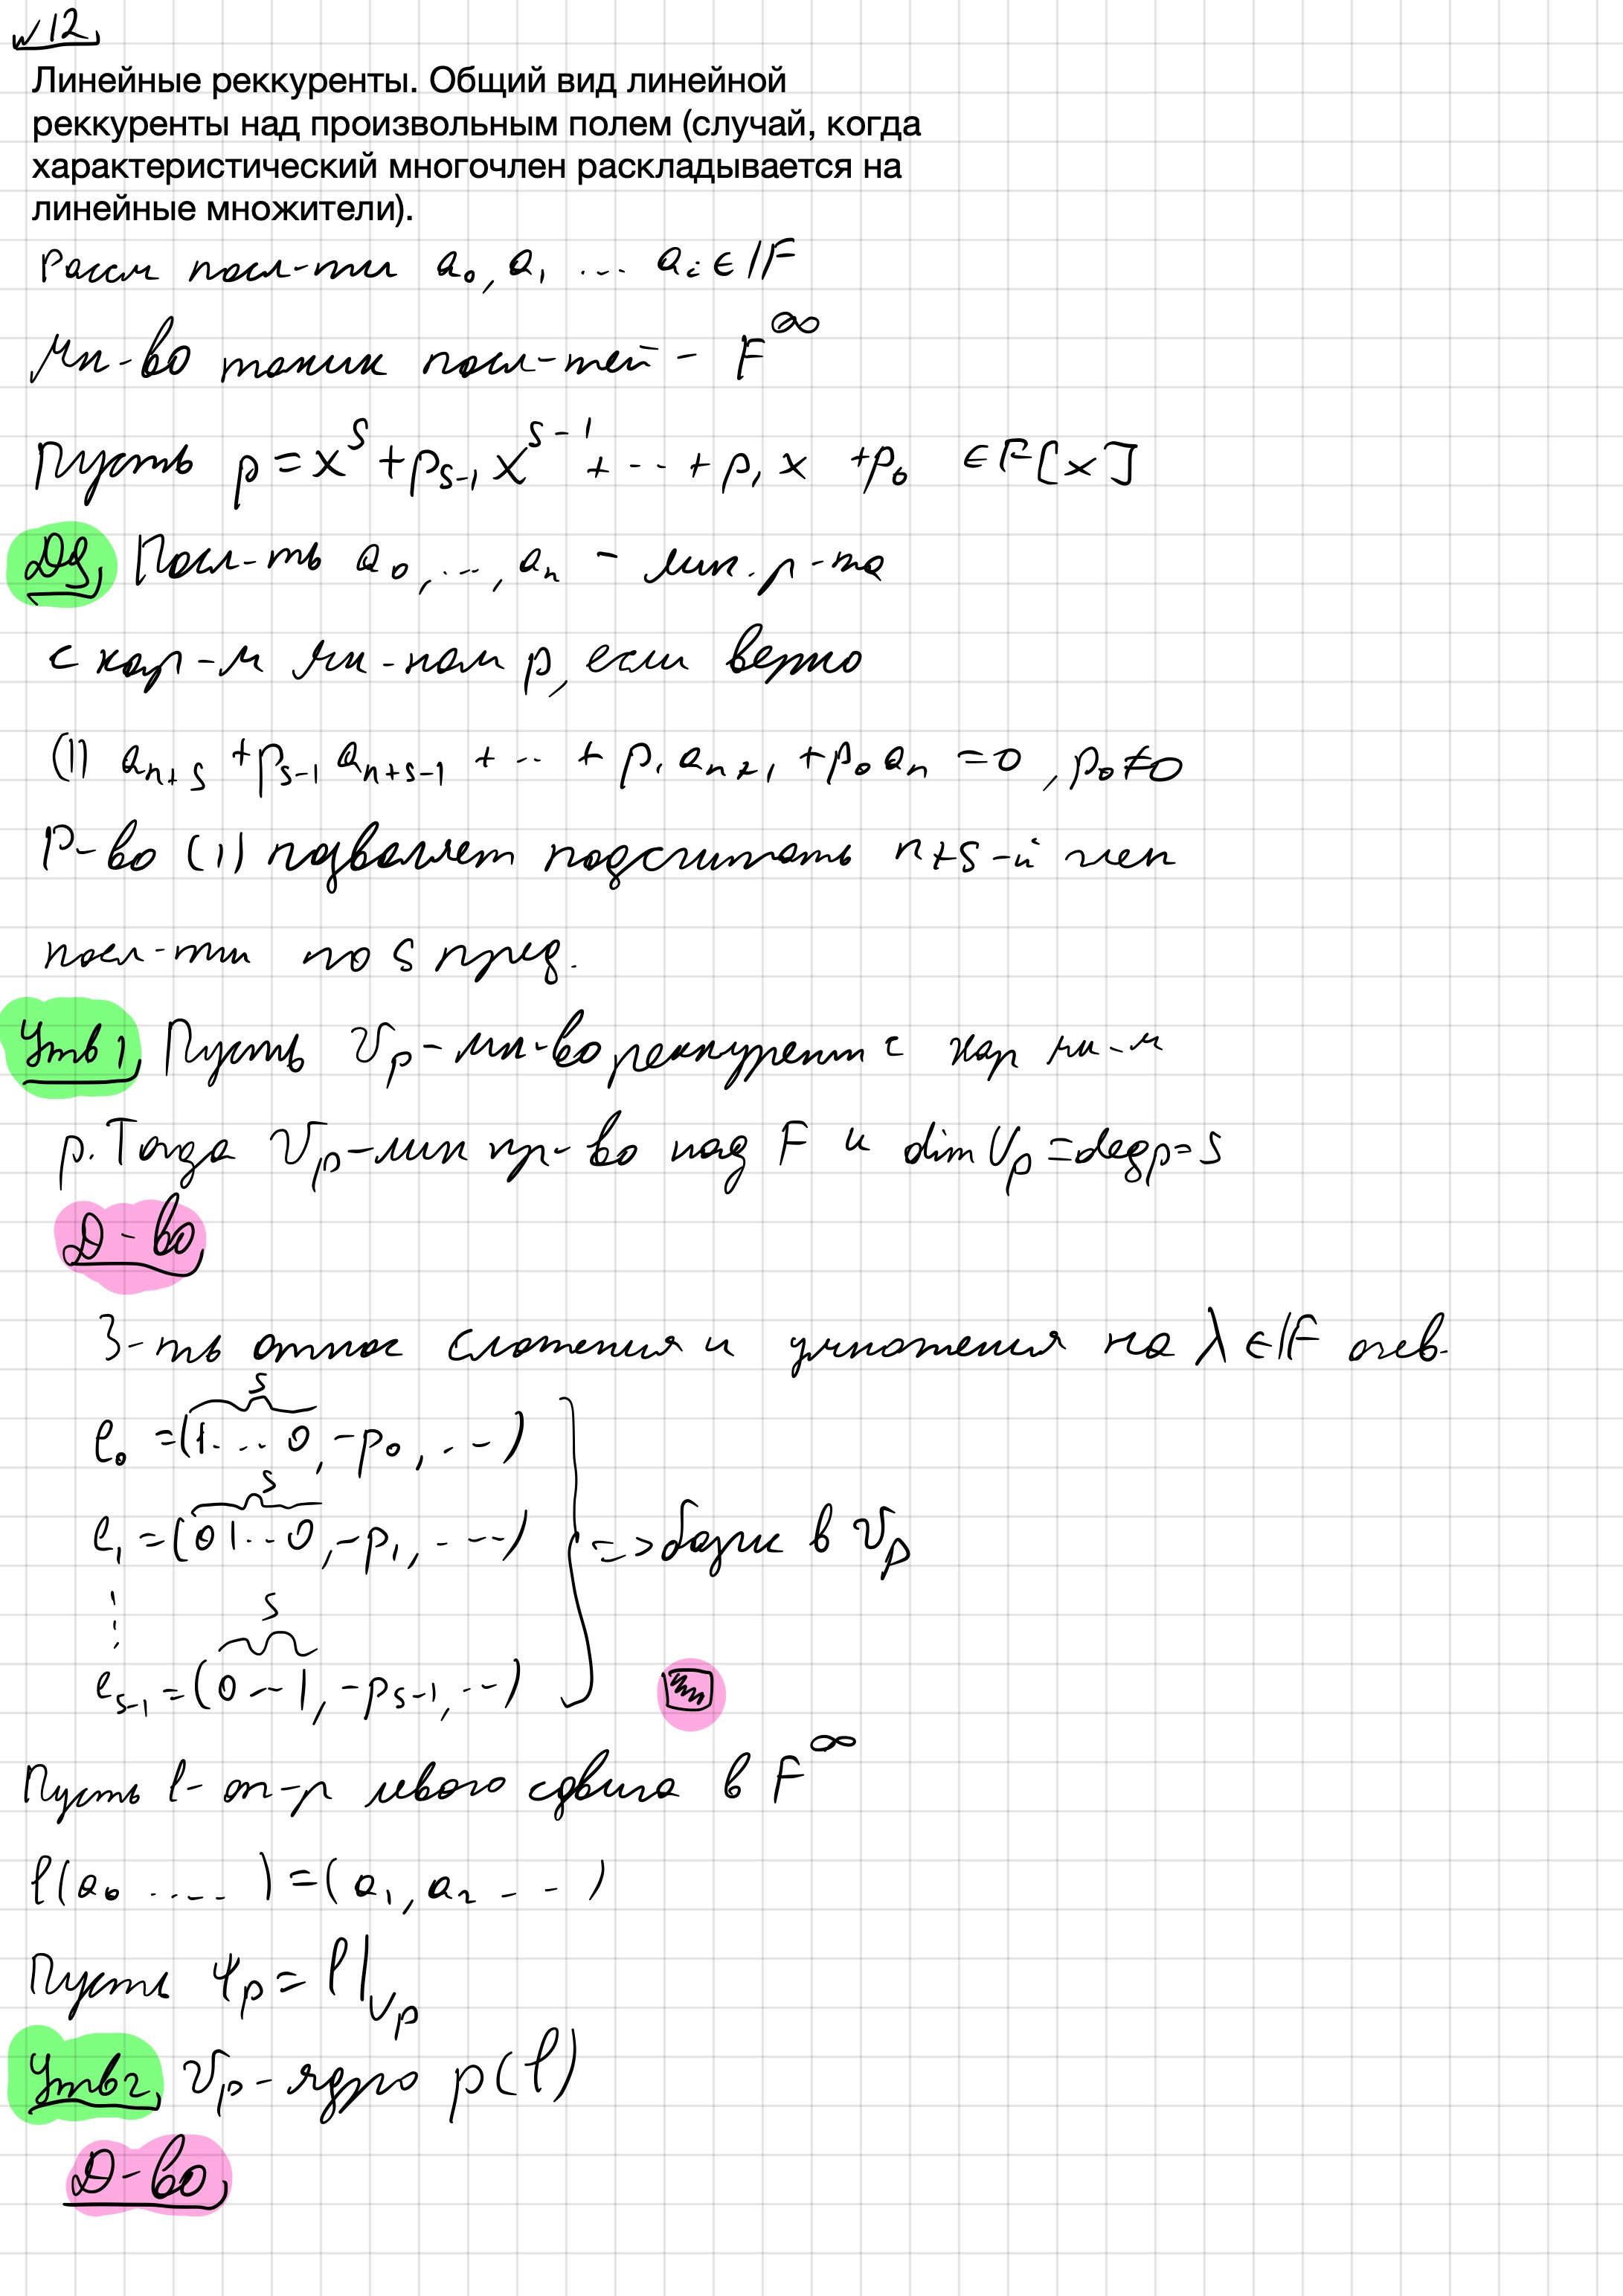 №12.
Линейные реккуренты. Общий вид линейной
реккуренты над произвольным полем (случай, когда
характеристический многочлен раскладывается на
линейные множители).
Рассм посл-ти a₀, a₁ ... aᵢ ∈ 𝔽
Мн-во таких посл-тей - F^∞
Пусть p = x^s + p_{s-1} x^{s-1} + ... + p₁ x + p₀ ∈ F[x]
Опр. Посл-ть a₀, ..., aₙ - лин. р-та
с хар-м мн-ном p, если верно
(1) a_{n+s} + p_{s-1} a_{n+s-1} + ... + p₁ a_{n+1} + p₀ aₙ = 0, p₀ ≠ 0
Р-во (1) позволяет подсчитать n+s-й член
посл-ти по s пред.
Утв 1. Пусть V_p - мн-во реккурент с хар мн-м
p. Тогда V_p - лин пр-во над F и dim V_p = deg p = s
Д-во.
З-ть относ сложения и умножения на λ ∈ 𝔽 очев.
s
e₀ = (1...0, -p₀, ...)
s
e₁ = (01...0, -p₁, ...) => базис в V_p
s
e_{s-1} = (0...1, -p_{s-1}, ...)
Пусть l - оп-р левого сдвига в F^∞
l(a₀ .....) = (a₁, a₂ ...)
Пусть φ_p = l|_{V_p}
Утв 2. V_p - ядро p(l)
Д-во.